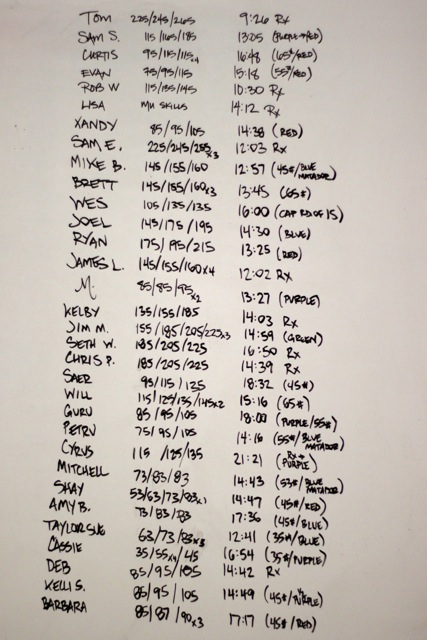 Tom 225/245/265 9:26 Rx
SAM S. 115/165/185 13:05 (PURPLE→RED)
CURTIS 95/115/115x4 16:48 (65#/RED)
EVAN 75/95/115 15:18 (55#/RED)
ROB W 115/135/145 10:30 Rx
LISA MU SKILLS 14:12 Rx
XANDY 85/95/105 14:38 (RED)
SAM E. 225/245/255x3 12:03 Rx
MIKE B. 145/155/160 12:57 (45#/BLUE MATADOR)
BRETT 145/155/160x3 13:45 (65#)
WES 105/135/135 16:00 (CAP RD OF 15)
JOEL 145/175/195 14:30 (BLUE)
RYAN 175/195/215 13:25 (RED)
JAMES L. 145/155/160x4 12:02 Rx
M. 85/85/95x2 13:27 (PURPLE)
KELBY 135/155/185 14:03 Rx
JIM M. 155/185/205/225x3 14:59 (GREEN)
SETH W. 185/205/225 16:50 Rx
CHRIS P. 185/205/225 14:39 Rx
SAER 95/115/125 18:32 (45#)
WILL 115/125/135/145x2 15:16 (65#)
GURU 85/95/105 18:00 (PURPLE/55#)
PETRU 75/95/105 14:16 (55#/BLUE MATADOR)
CYRUS 115/125/135 21:21 (Rx+ PURPLE)
MITCHELL 73/83/83 14:43 (53#/BLUE MATADOR)
SHAY 53/63/73/83x1 14:47 (45#/RED)
AMY B. 73/83/83 17:36 (45#/BLUE)
TAYLOR SUE 63/73/83x3 12:41 (35#/BLUE)
CASSIE 35/55x4/45 16:54 (35#/PURPLE)
DEB 85/95/105 14:42 Rx
KELLI S. 85/95/105 14:49 (45#/PURPLE)
BARBARA 85/87/90x3 17:17 (45#/RED)